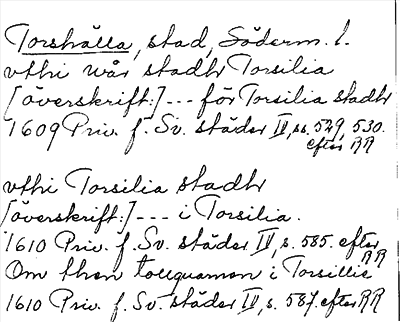 Torshälla, stad, Söderm. l.
vthi wår stadh Torsilia
[överskrift:] --- för Torsilia stadh
1609 Priv. f. Sv. städer IV, ss. 529, 530.
efter RR
vthi Torsilia stadh
[överskrift:] --- i Torsilia.
1610 Priv. f. Sv. städer IV, s. 585. efter
RR
Om then touquarnen i Torsillie
1610 Priv. f. Sv. städer IV, s. 587. efter RR